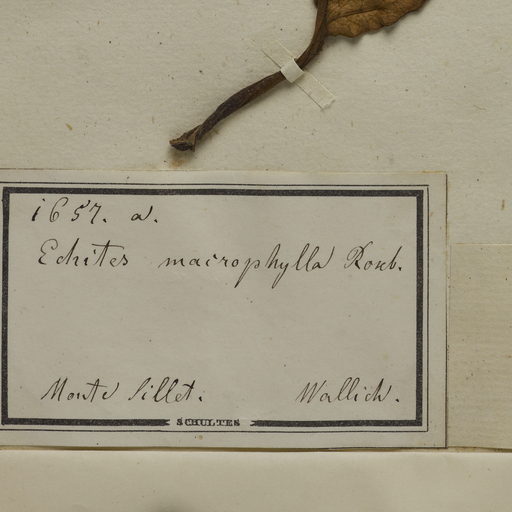 1657. a.
Echites macrophylla Roxb.
Monte Sillet. Wallich.
SCHULTES